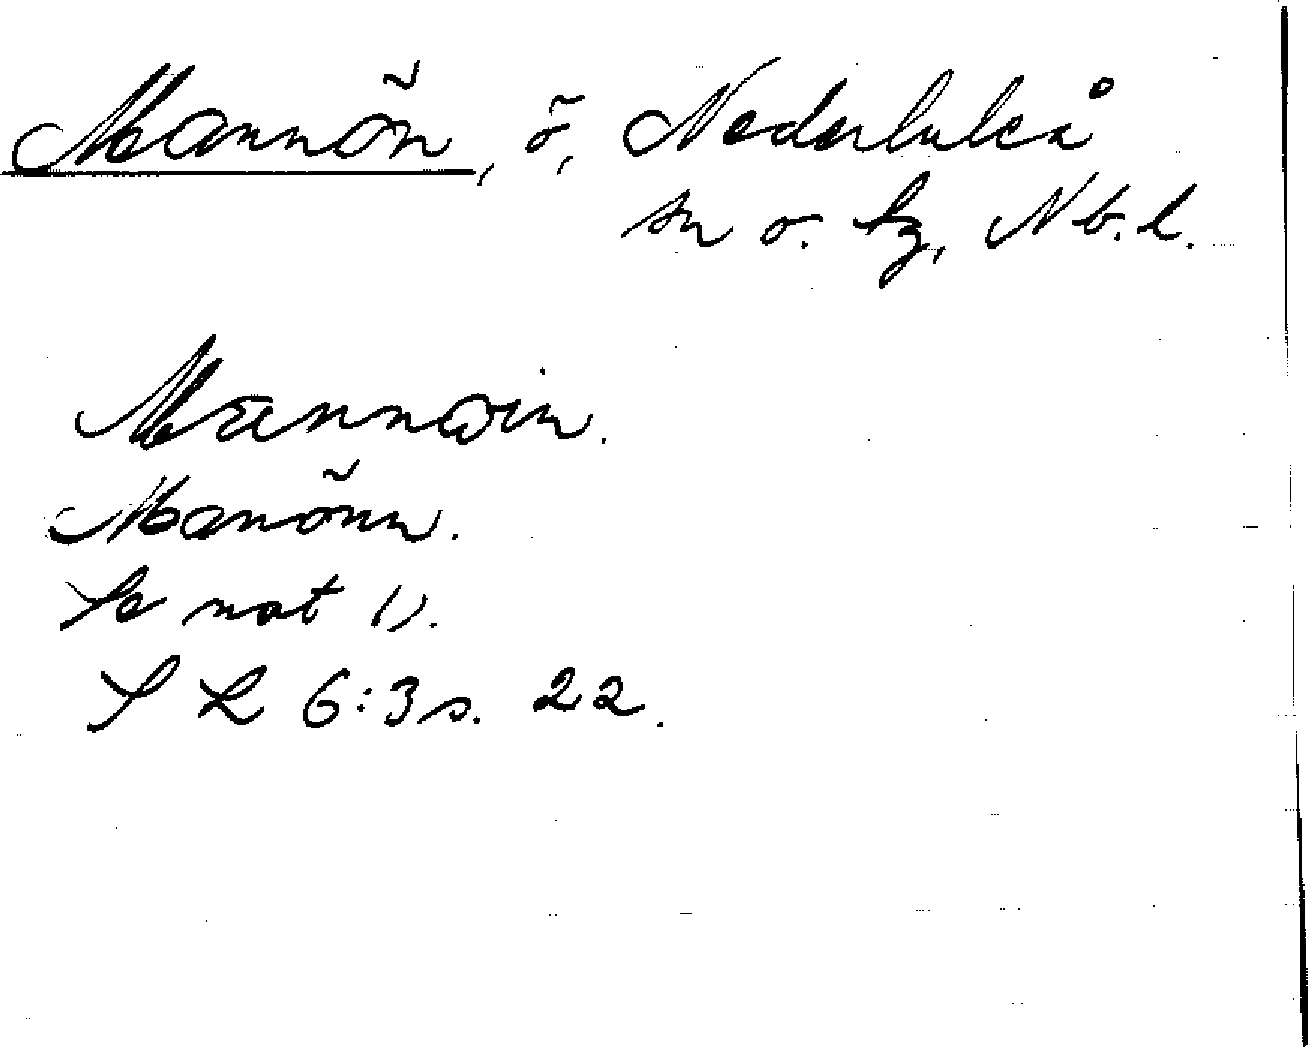 Mannön, ö, Nederluleå
sn o. tg, Nb. l.
Mannöin.
Manönn.
Se not 1).
S R 6:3 s. 22.